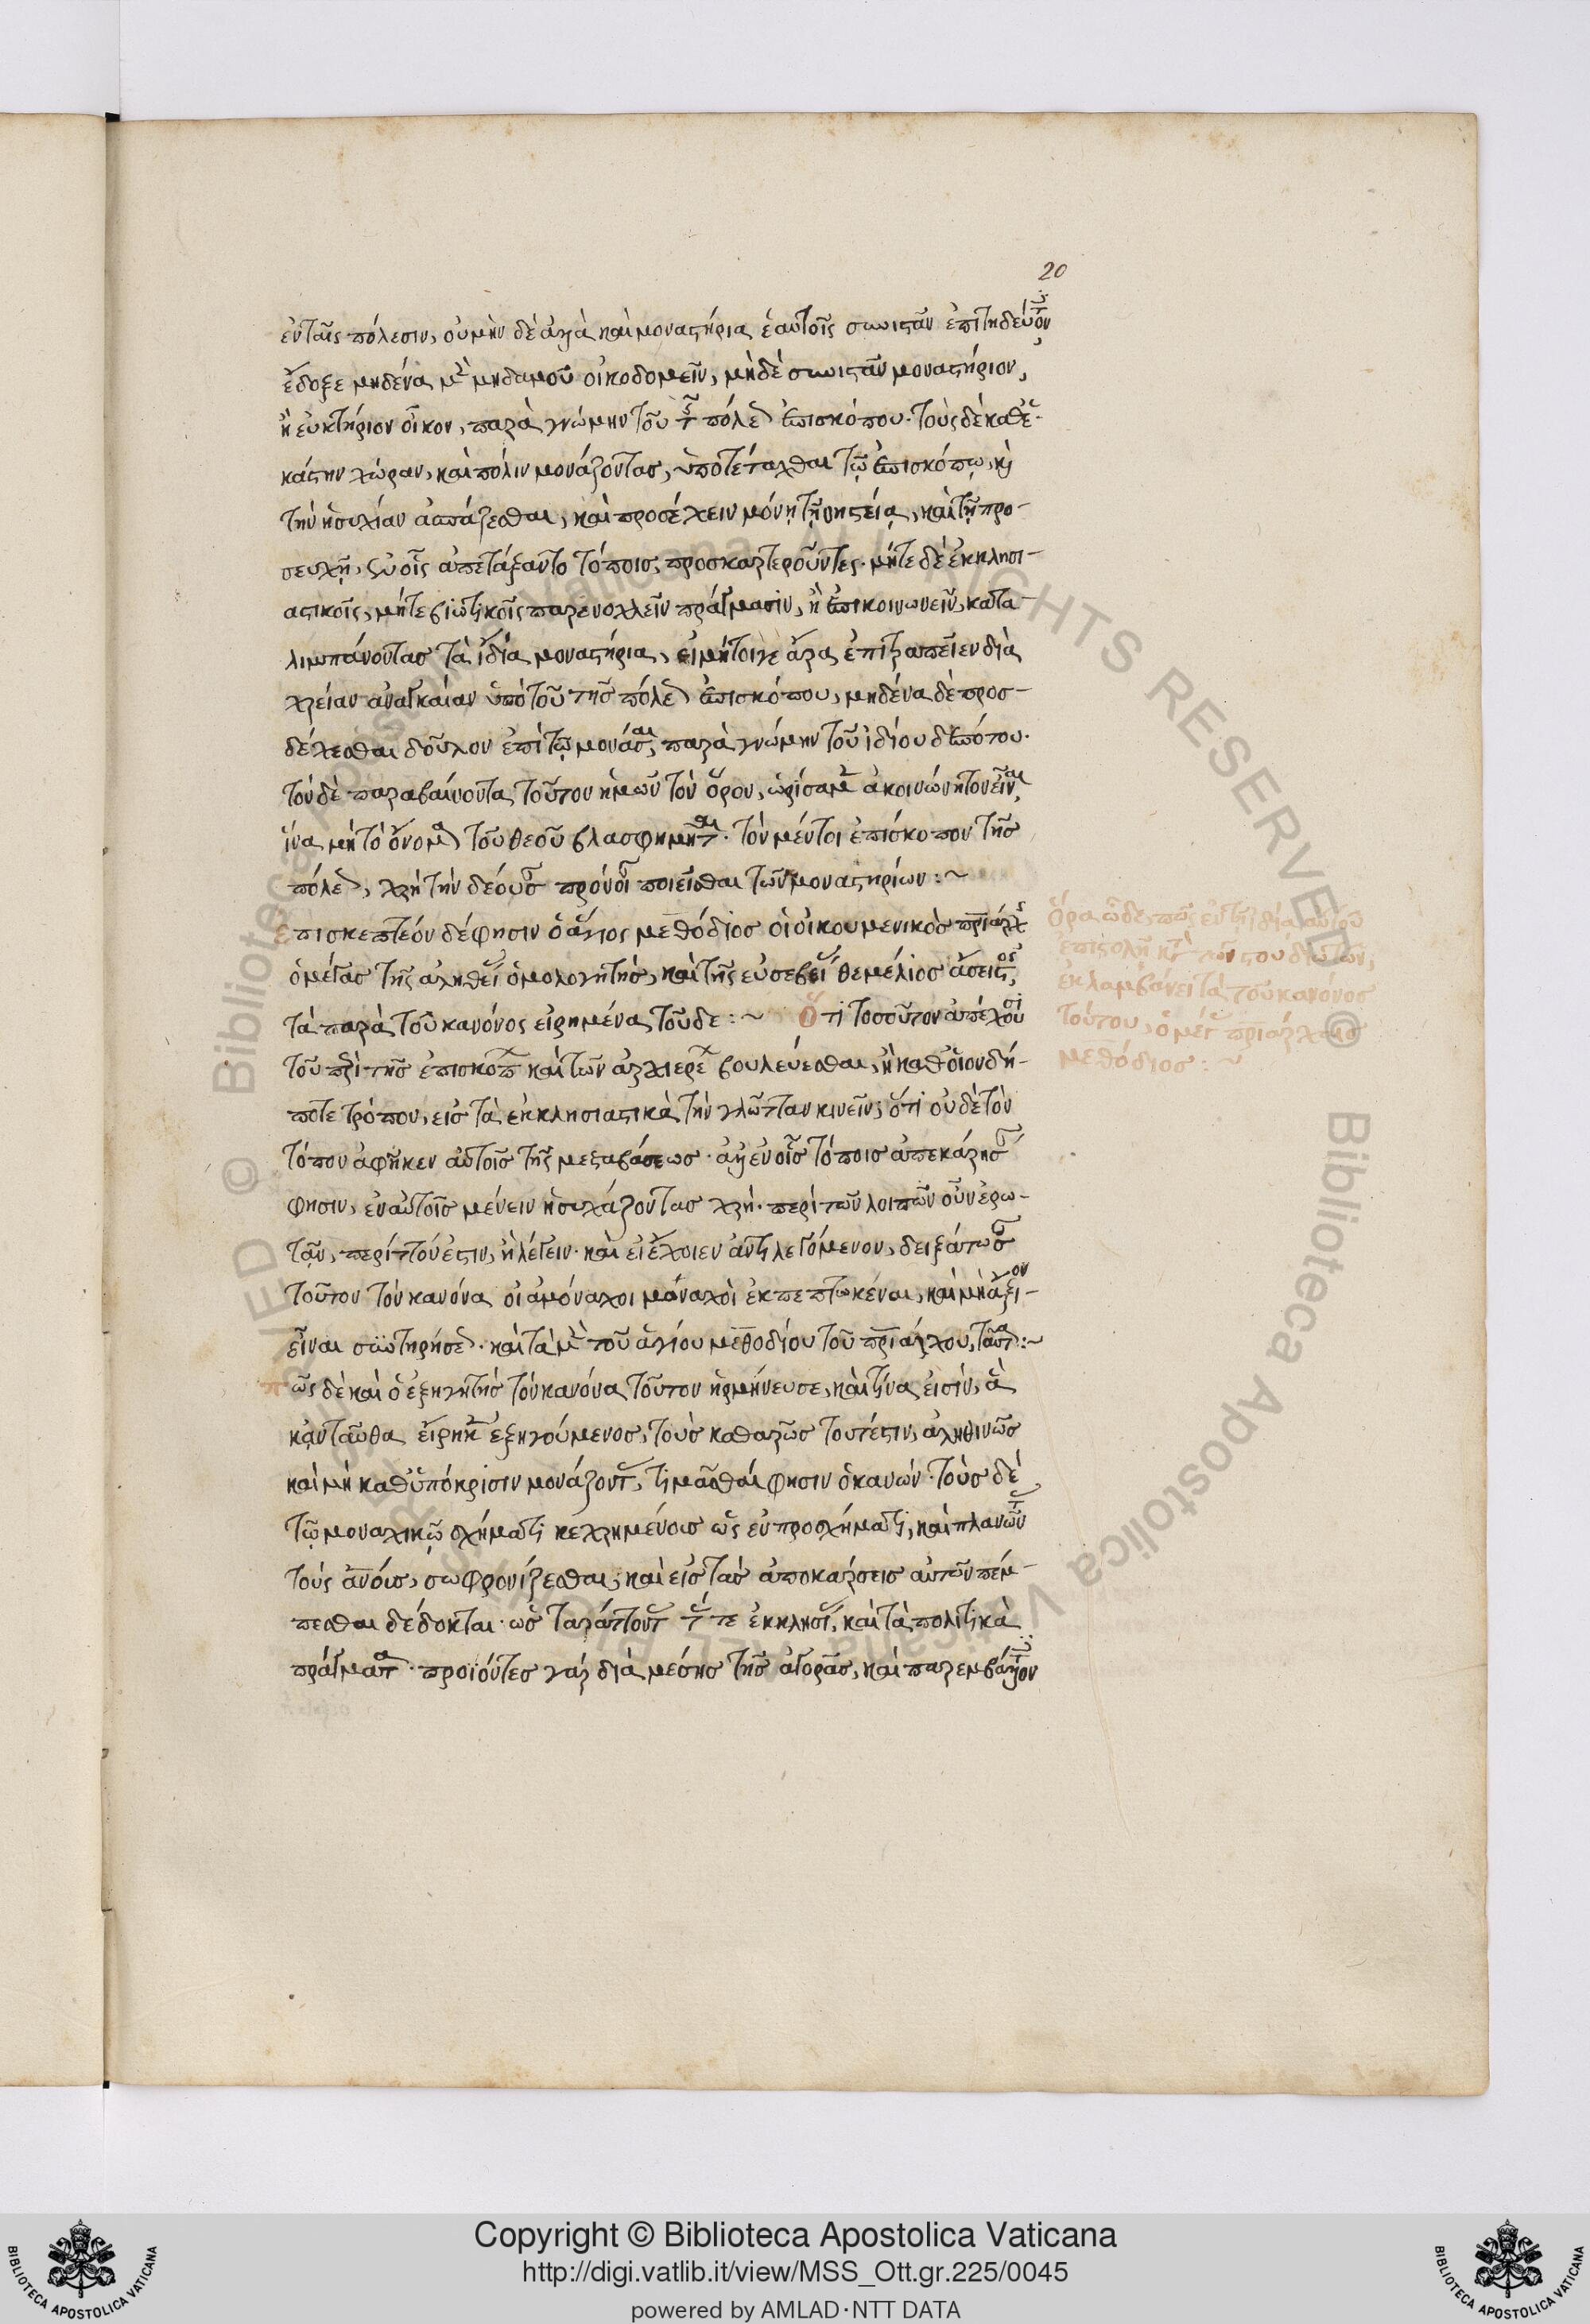 20
ἐν ταῖς πόλεσιν, οὐ μὴν δὲ ἀλλὰ καὶ μοναστήρια ἑαυτοῖς συνιστᾶν ἐπιτηδεύοντες
ἔδοξε μηδένα μὲν μηδαμοῦ οἰκοδομεῖν, μηδὲ συνιστᾶν μοναστήριον,
ἢ εὐκτήριον οἶκον, παρὰ γνώμην τοῦ τῆς πόλεως ἐπισκόπου. τοὺς δὲ καθ' ἑ-
κάστην χώραν, καὶ πόλιν μονάζοντας, ὑποτετάχθαι τῷ ἐπισκόπῳ, καὶ
τὴν ἡσυχίαν ἀσπάζεσθαι, καὶ προσέχειν μόνῃ τῇ νηστείᾳ, καὶ τῇ προ-
σευχῇ, ἐν οἷς ἀπετάξαντο τόποις, προσκαρτεροῦντες. μήτε δὲ ἐκκλησι-
αστικοῖς, μήτε βιωτικοῖς παρενοχλεῖν πράγμασιν, ἢ ἐπικοινωνεῖν, κατα-
λιμπάνοντας τὰ ἴδια μοναστήρια, εἰ μήτοιγε ἄρα ἐπιτραπεῖεν διὰ
χρείαν ἀναγκαίαν ὑπὸ τοῦ τῆς πόλεως ἐπισκόπου, μηδένα δὲ προσ-
δέχεσθαι δοῦλον ἐπὶ τῷ μονάσαι, παρὰ γνώμην τοῦ ἰδίου δεσπότου.
τὸν δὲ παραβαίνοντα τοῦτον ἡμῶν τὸν ὅρον, ὡρίσαμεν ἀκοινώνητον εἶναι,
ἵνα μὴ τὸ ὄνομα τοῦ θεοῦ βλασφημῆται. τὸν μέντοι ἐπίσκοπον τῆς
πόλεως, χρὴ τὴν δέουσαν πρόνοιαν ποιεῖσθαι τῶν μοναστηρίων :~
ἐπισκεπτέον δέ φησιν ὁ ἅγιος μεθόδιος ὁ οἰκουμενικὸς πριάρχης
ὁ μέγας τῆς ἀληθείας ὁμολογητὴς, καὶ τῆς εὐσεβείας θεμέλιος ἄσειστος,
τὰ παρὰ τοῦ κανόνος εἰρημένα τοῦδε :~ ὅτι τοσοῦτον ἀπέχουσι
τοῦ περὶ τῆς ἐπισκοπῆς καὶ τῶν ἀρχιερέων βουλεύεσθαι, ἢ καθ' οἱονδή-
ποτε τρόπον, εἰς τὰ ἐκκλησιαστικὰ τὴν γλῶτταν κινεῖν, ὅτι οὐδὲ τὸν
τόπον ἀφῆκεν αὐτοῖς τῆς μεταβάσεως. ἀλλ' ἐν οἷς τόποις ἀπεκάρησαν
φησιν, ἐν αὐτοῖς μένειν ἡσυχάζοντας χρή. περὶ τῶν λοιπῶν οὖν ἐρω-
τᾶν, περιττόν ἐστιν, ἢ λέγειν. καὶ εἰ ἔχοιεν ἀντιλεγόμενον, δειξάτωσαν
τοῦτον τὸν κανόνα οἱ ἀμόναχοι μοναχοὶ ἐκπεπτωκέναι, καὶ μὴ ἄξιον
εἶναι συντηρήσεως. καὶ τὰ μὲν τοῦ ἁγίου μεθοδίου τοῦ πριάρχου, ταῦτα :~
πῶς δὲ καὶ ὁ ἐξηγητὴς τὸν κανόνα τοῦτον ἡρμήνευσε, καὶ τίνα εἰσὶν, ἃ
κἀνταῦθα εἴρηκεν ἐξηγούμενος, τοὺς καθαρῶς τουτέστιν, ἀληθινῶς
καὶ μὴ καθ' ὑπόκρισιν μονάζοντας, τιμᾶσθαί φησιν ὁ κανών. τοὺς δὲ
τῷ μοναχικῷ σχήματι κεχρημένους ὡς ἐν προσχήματι, καὶ πλανῶντας
τοὺς ἀνόυς, σωφρονίζεσθαι, καὶ εἰς τὰς ἀποκάρσεις αὐτῶν πέμ-
πεσθαι δέδοκται. ὡς ταράττοντας τάς τε ἐκκλησίας, καὶ τὰ πολιτικὰ
πράγματα. προϊόντες γὰρ διὰ μέσης τῆς ἀγορᾶς, καὶ παρεμβάλλοντες
ὅρα ὧδε, πῶς ἐν τῇ ἰδίᾳ αὐτοῦ
ἐπιστολῇ κατὰ τῶν στουδιωτῶν,
ἐκλαμβάνει τὰ τοῦ κανόνος
τούτου, ὁ μέγας πριάρχης
μεθόδιος :~
Copyright © Biblioteca Apostolica Vaticana
http://digi.vatlib.it/view/MSS_Ott.gr.225/0045
powered by AMLAD·NTT DATA